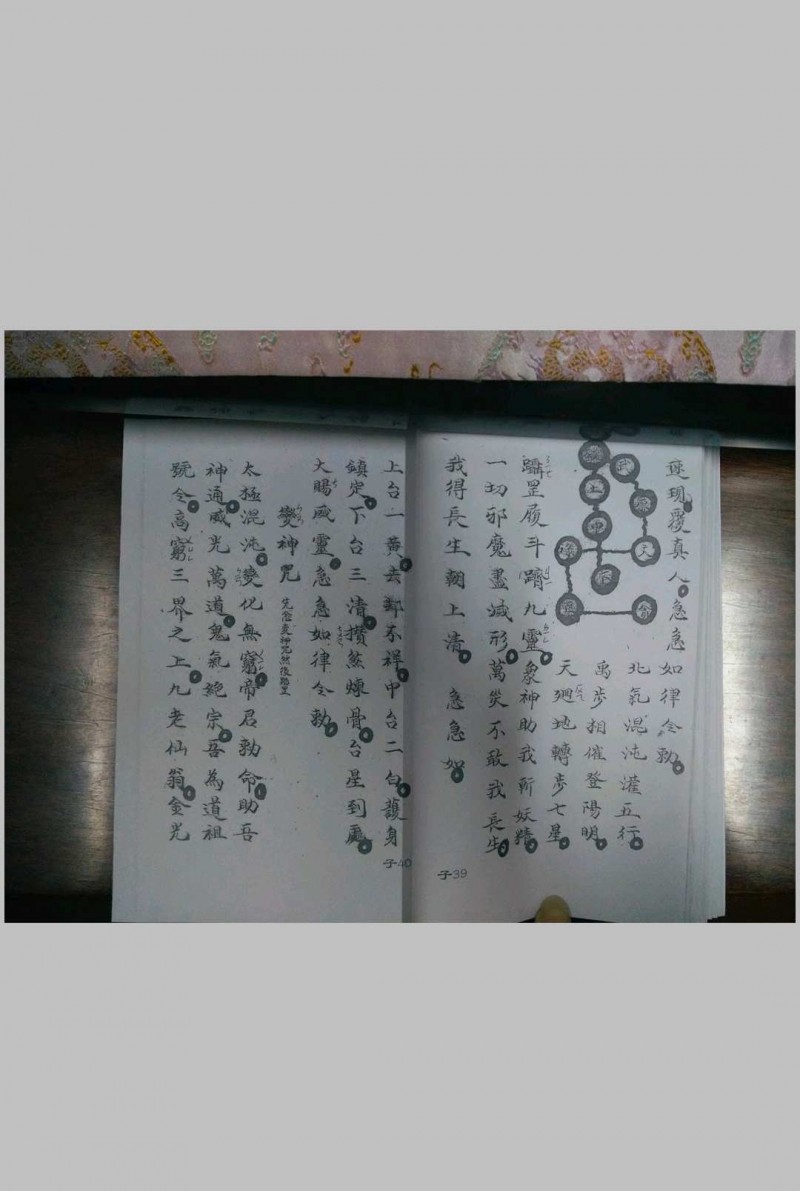 現覆真人急急如律令勅
武
土
中
天
北氣混沌灌五行
禹步相催登陽明
天廻地轉步七星
躡罡履斗躋九靈眾神助我斬妖精
一切邪魔盡滅形萬災不敢我長生
我得長生朝上清 急急如
子39
上台一黃去却不祥中台二白護身
鎮定下台三清攢煞煉骨台星到處
大賜威靈急急如律令勅
變神咒
太極混沌變化無窮帝君勅命助吾
神通威光萬道鬼氣絕宗吾為道祖
號令高窮三界之上九老仙翁金光
子40